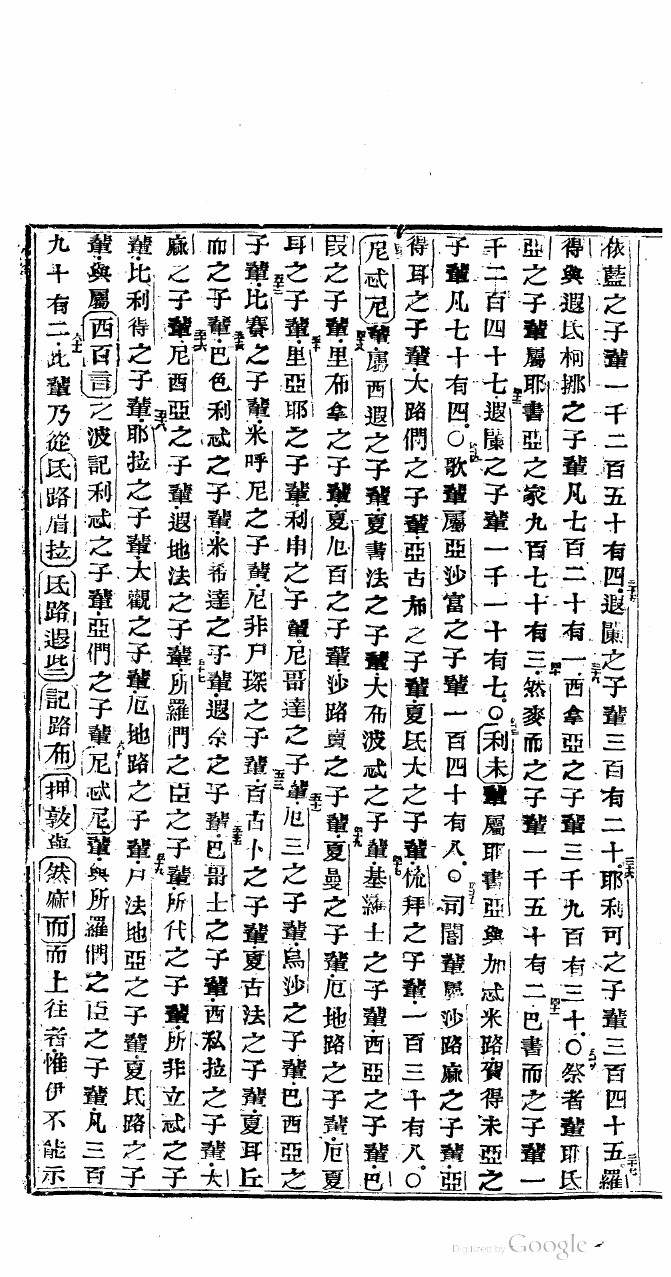 依藍之子輩一千二百五十有四遐闌之子輩三百有二十耶利可之子輩三百四十五羅
得與遐氐柯挪之子輩凡七百二十有一西拿亞之子輩三千九百有三十〇祭者輩耶氐
亞之子輩屬耶書亞之家九百七十有三然麥而之子輩一千五十有二巴書而之子輩一
千二百四十七遐闌之子輩一千一十有七〇利未輩屬耶書亞與加忒米路賀得未亞之
子輩凡七十有四〇歌輩屬亞沙富之子輩一百四十有八〇司閽輩屬沙路麻之子輩亞
得耳之子輩大路們之子輩亞古布之子輩夏氐大之子輩梳拜之子輩一百三十有八〇
尼忒尼輩屬西遐之子輩夏書法之子輩大布波忒之子輩基羅士之子輩西亞之子輩巴
段之子輩里布拿之子輩夏厄百之子輩沙路賣之子輩夏曼之子輩厄地路之子輩厄夏
耳之子輩里亞耶之子輩利申之子輩尼哥達之子輩厄三之子輩烏沙之子輩巴西亞之
子輩比賽之子輩米呼尼之子輩尼非尸琛之子輩百古卜之子輩夏古法之子輩夏耳丘
而之子輩巴色利忒之子輩米希達之子輩遐厽之子輩巴哥士之子輩西私拉之子輩大
麻之子輩尼西亞之子輩遐地法之子輩所羅門之臣之子輩所代之子輩所非立忒之子
輩比利得之子輩耶拉之子輩大觀之子輩厄地路之子輩尸法地亞之子輩夏氐路之子
輩與屬西百言之波記利忒之子輩亞們之子輩尼忒尼輩與所羅們之臣之子輩凡三百
九十有二此輩乃從氐路眉拉氐路遐些記路布押敦與然麻而而上往者惟伊不能示
Digitized by Google